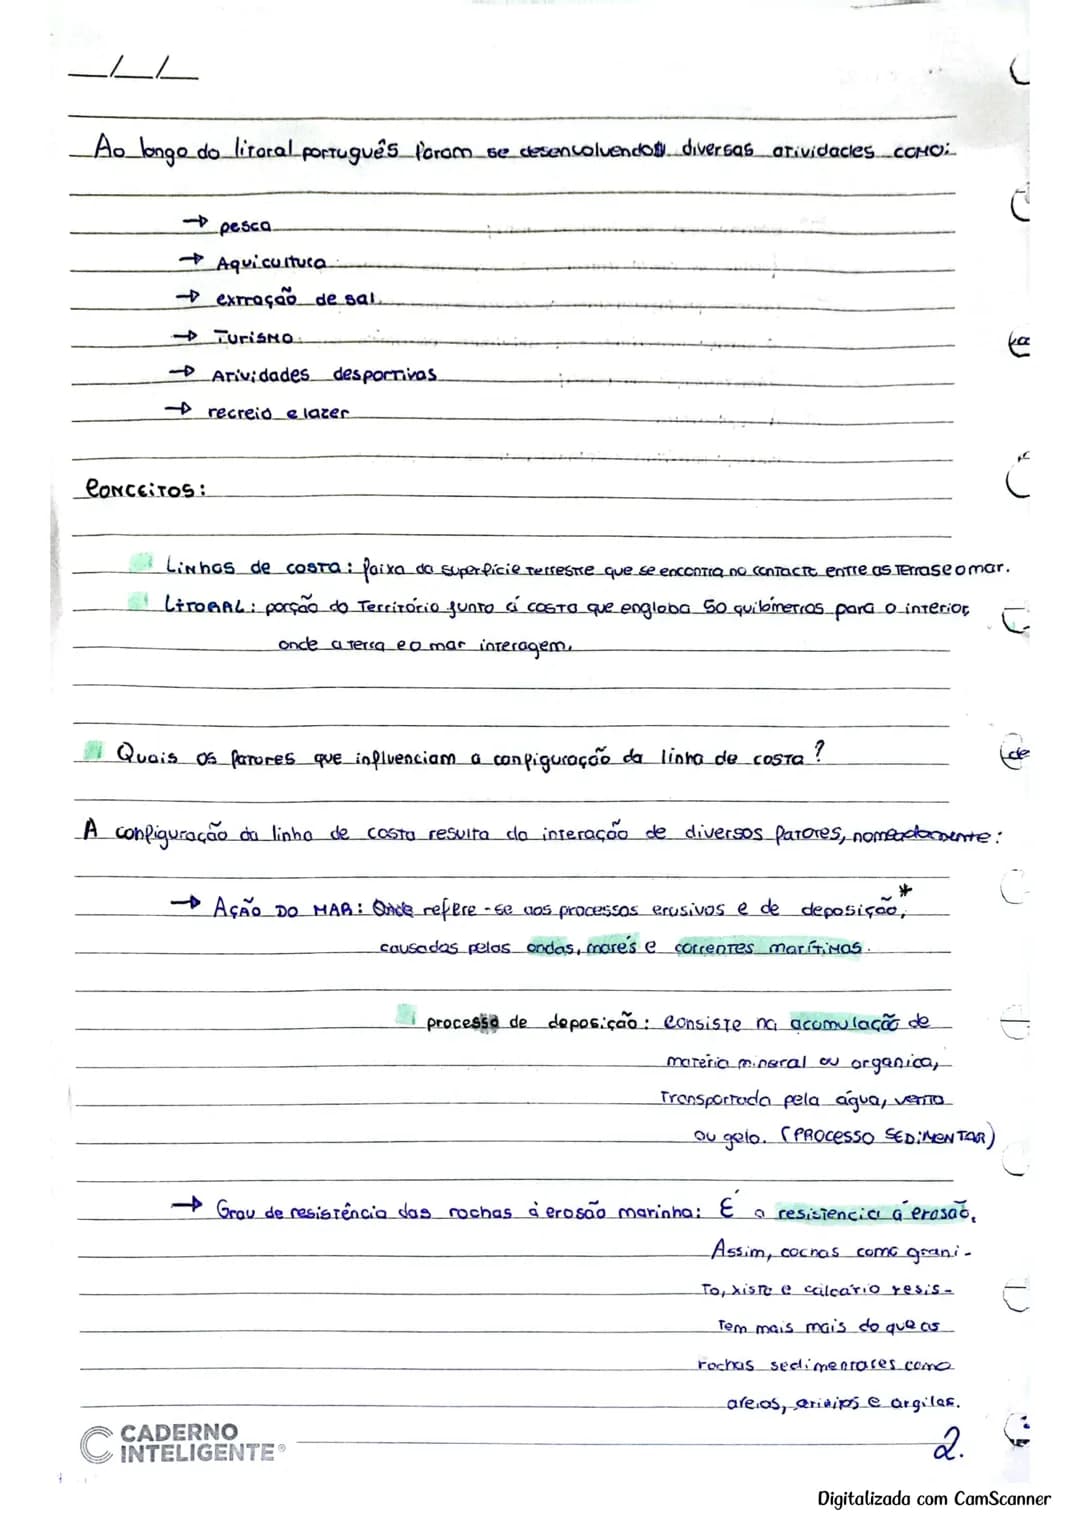 __/__/__
Ao longo do litoral português foram se desenvolvendo diversas atividades como:
→ pesca
→ Aquicultura
→ extração de sal
→ Turismo
→ Atividades desportivas
→ recreio e lazer
Conceitos:
Linhas de costa: faixa da superfície terrestre que se encontra no contacto entre as terras e o mar.
Litoral: porção do Território junto á costa que engloba 50 quilómetros para o interior,
onde a terra e o mar interagem.
Quais os fatores que influenciam a configuração da linha de costa?
A configuração da linha de costa resulta da interação de diversos fatores, nomeadamente:
→ AÇÃO DO MAR: Onde refere-se aos processos erosivos e de deposição,*
causadas pelas ondas, marés e correntes marítimas.
processo de deposição: Consiste na acumulação de
matéria mineral ou organica,
Transportada pela água, vento
ou gelo. (PROCESSO SEDIMENTAR)
→ Grau de resistência das rochas à erosão marinha: É a resistencia á erosão.
Assim, rochas como grani-
to, xisto e calcário resis-
tem mais mais do que as
rochas sedimentares como
areias, e argilas.
CADERNO
INTELIGENTE®
2.
Digitalizada com CamScanner
de